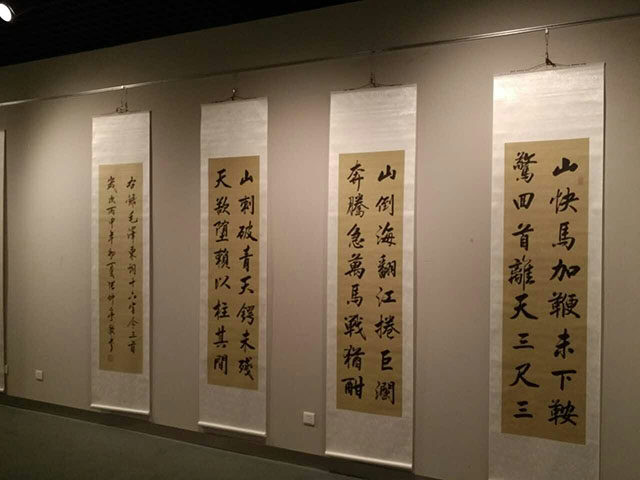 山快馬加鞭未下鞍
驚回首離天三尺三
山倒海翻江捲巨瀾
奔騰急萬馬戰猶酣
山刺破青天鍔未殘
天欲墮賴以柱其間
右錄毛澤東詞十六字令三首
歲次丙申年初夏